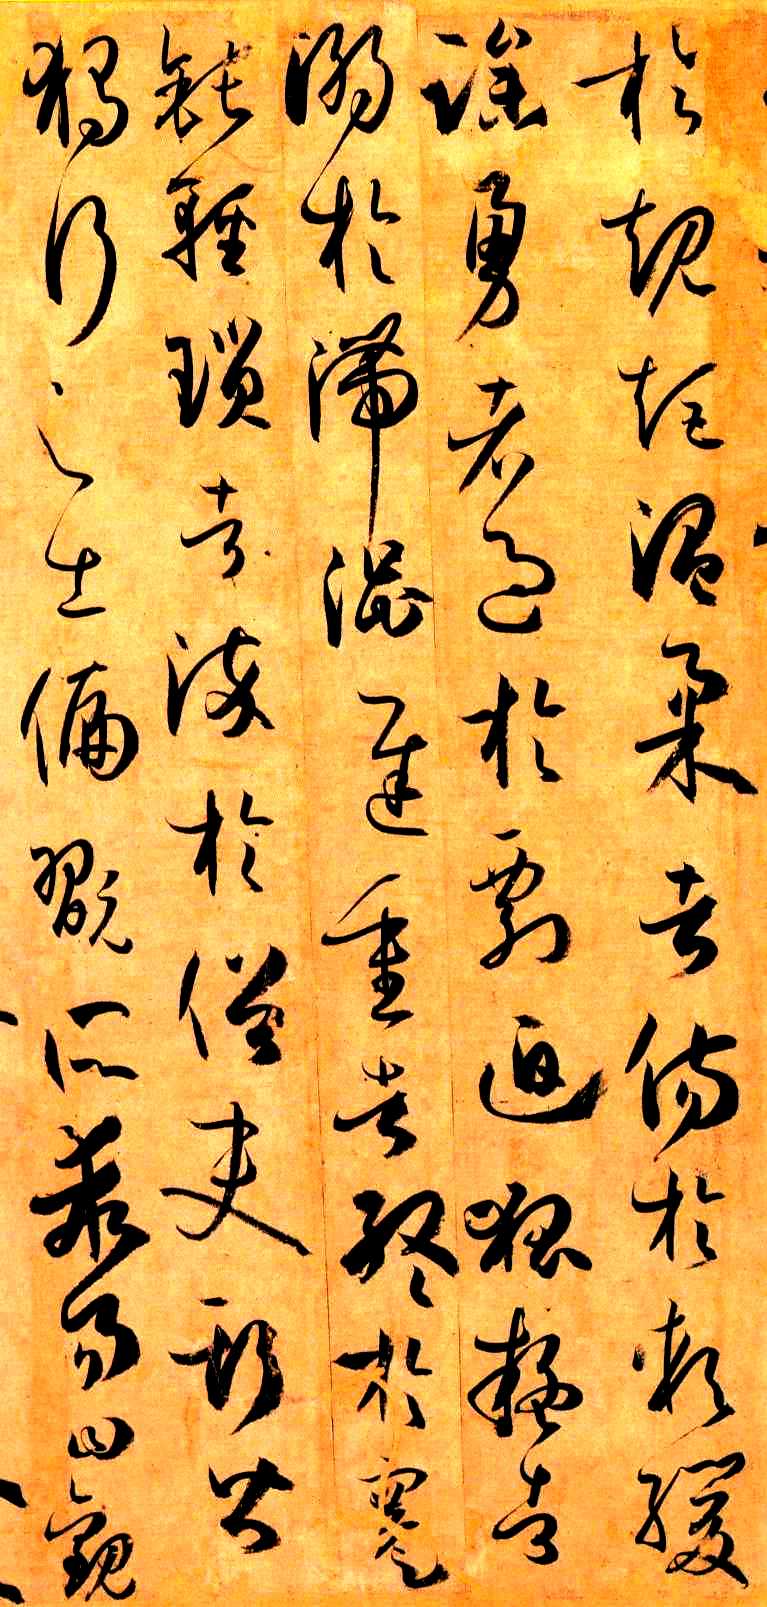 於規矩溫柔者傷於軟緩
躁勇者過於剽迫狐疑者
溺於滯澀遲重者終於蹇
鈍輕瑣者染於俗吏斯皆
獨行之士偏翫所乖易曰觀